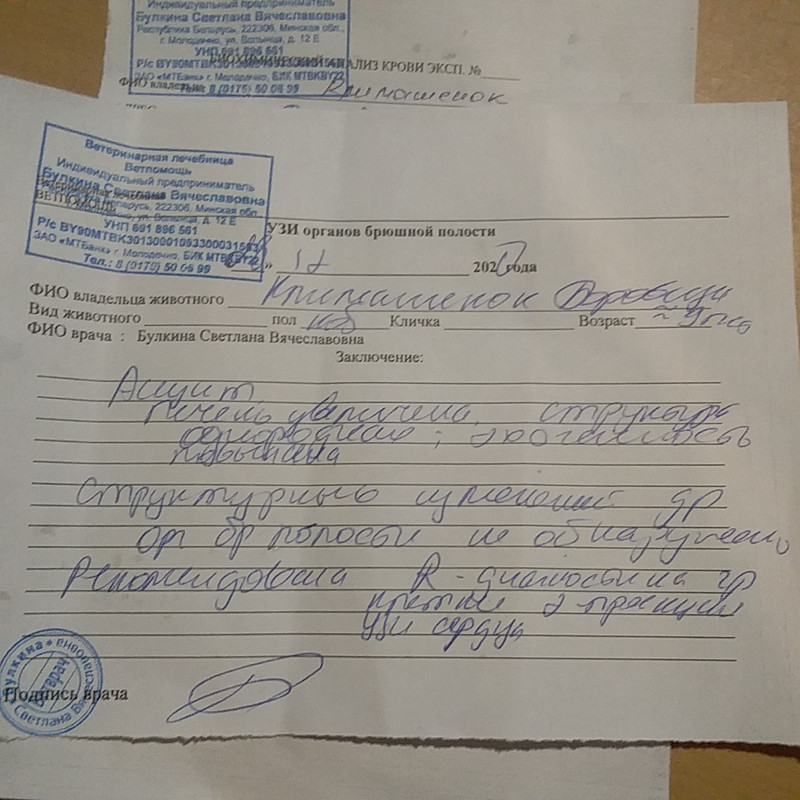 Индивидуальный предприниматель
Булкина Светлана Вячеславовна
Республика Беларусь, 222306, Минская обл.,
г. Молодечно, ул. Волынца, д. 12 Е
УНП 691 896 561
БИОХИМИЧЕСКИЙ АНАЛИЗ КРОВИ ЭКСП. №
ЗАО «МТБанк» г. Молодечно, БИК MTBKBY22
Тел.: 8 (0176) 50 06 99
ФИО владельца Климашенок
Ветеринарная лечебница
Ветпомощь
Индивидуальный предприниматель
Булкина Светлана Вячеславовна
Беларусь, 222306, Минская обл.
Молодечно, ул. Волынца, д. 12 Е
ВЕТПОМОЩЬ
УНП 691 896 561
ЗАО «МТБанк» г. Молодечно, БИК MTBKBY22
Тел.: 8 (0176) 50 06 99
УЗИ органов брюшной полости
» 12 202 года
ФИО владельца животного Климашенок
Вид животного пол Кличка Возраст
ФИО врача : Булкина Светлана Вячеславовна
Заключение:
Асцит
Печень увеличена, структура
однородная; эхогенность
повышена
Структурных изменений др
орг бр полости не обнаружено
Рекомендована R-диагностика гр
клетки 2 проекции
УЗИ сердца
Булкина
Ветврач
Светлана
Подпись врача